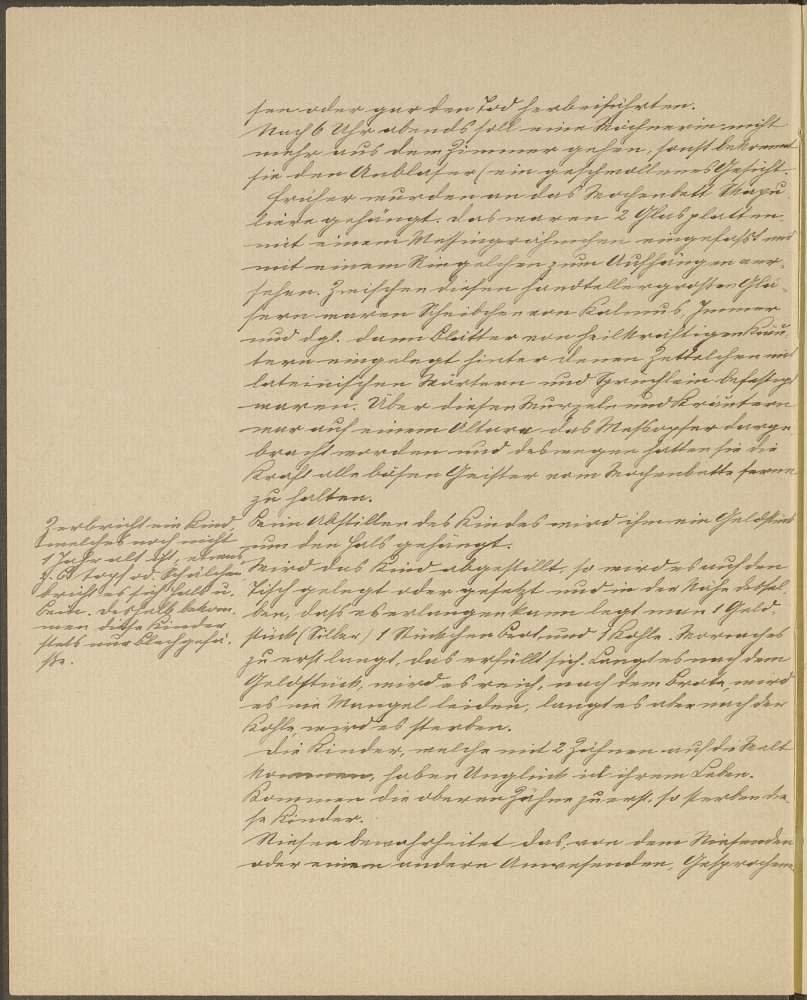 sen oder gar den Tod herbeiführten.
Nach 6 Uhr abends soll eine Wöchnerin nicht
mehr aus dem Zimmer gehen, sonst bekommt
sie den Anblaser (ein geschwollenes Gesicht.
Früher wurden an das Wochenbett Skapu-
liere gehängt. Das waren 2 Glasplatten
mit einem Messingrähmchen eingefasst und
mit einem Ringelchen zum Aufhängen ver-
sehen. Zwischen diesen handtellergroßen Glä-
sern waren Scheibchen von Kalmus, Ingwer
und dgl. dann Blätter von heilkräftigen Kräu-
tern eingelegt hinter denen Zettelchen mit
lateinischen Wörtern und Sprüchlein befestigt
waren. Über diesen Wurzeln und Kräutern
war auf einem Altare das Messopfer darge-
bracht worden und deswegen hatten sie die
Kraft alle bösen Geister vom Wochenbette ferne
zu halten.
Zerbricht ein Kind,
welches noch nicht
1 Jahr alt ist, etwas
z. B. Topf od. Schälchen
bricht es sich Hals u.
Bein. Deshalb bekom-
men diese Kinder
stets nur Blechgefä-
ße.
Beim Abstillen des Kindes wird ihm ein Geldstück
um den Hals gehängt.
Wird das Kind abgestillt, so wird es auf den
Tisch gelegt oder gesetzt und in der Nähe dessel-
ben, dass es erlangen kann legt man 1 Geld-
stück (Silber) 1 Stückchen Brot und 1 Kohle. Wornach es
zu erst langt, das erfüllt sich. Langt es nach dem
Geldstück, wird es reich, nach dem Brote, wird
es nie Mangel leiden, langt es aber nach der
Kohle, wird es sterben.
Die Kinder, welche mit 2 Zähnen auf die Welt
kommen, haben Unglück in ihrem Leben.
Kommen die oberen Zähne zuerst, so sterben die-
se Kinder.
Niesen bewahrheitet das, von dem Niesenden
oder einem andern Anwesenden, Gesprochene.